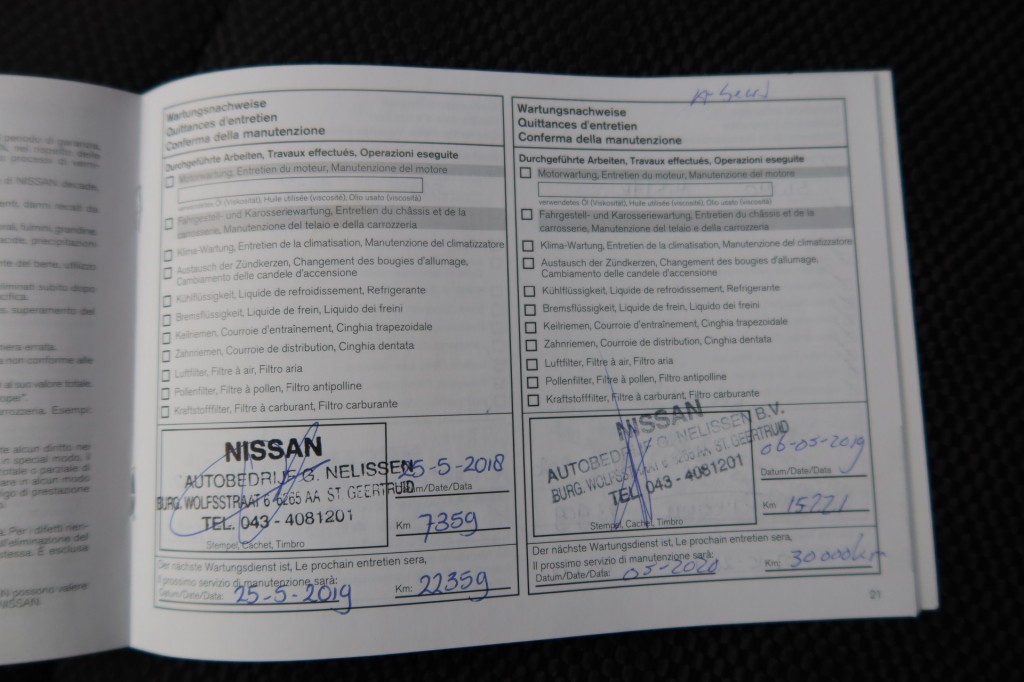 Wartungsnachweise
Quittances d'entretien
Conferma della manutenzione
Durchgeführte Arbeiten, Travaux effectués, Operazioni eseguite
Motorwartung, Entretien du moteur, Manutenzione del motore
verwendetes Öl (Viskosität), Huile utilisée (viscosité), Olio usato (viscosità)
Fahrgestell- und Karosseriewartung, Entretien du châssis et de la
carrosserie, Manutenzione del telaio e della carrozzeria
Klima-Wartung, Entretien de la climatisation, Manutenzione del climatizzatore
Austausch der Zündkerzen, Changement des bougies d'allumage,
Cambiamento delle candele d'accensione
Kühlflüssigkeit, Liquide de refroidissement, Refrigerante
Bremsflüssigkeit, Liquide de frein, Liquido dei freini
Keilriemen, Courroie d'entraînement, Cinghia trapezoidale
Zahnriemen, Courroie de distribution, Cinghia dentata
Luftfilter, Filtre à air, Filtro aria
Pollenfilter, Filtre à pollen, Filtro antipolline
Kraftstofffilter, Filtre à carburant, Filtro carburante
NISSAN
AUTOBEDRIJF G. NELISSEN
BURG. WOLFSSTRAAT 6 6265 AA ST. GEERTRUID
TEL. 043 - 4081201
Stempel, Cachet, Timbro
25-5-2018
Datum/Date/Data
Km 7359
Der nächste Wartungsdienst ist, Le prochain entretien sera,
Il prossimo servizio di manutenzione sarà:
Datum/Date/Data: 25-5-2019 Km: 22359
Wartungsnachweise
Quittances d'entretien
Conferma della manutenzione
Durchgeführte Arbeiten, Travaux effectués, Operazioni eseguite
Motorwartung, Entretien du moteur, Manutenzione del motore
verwendetes Öl (Viskosität), Huile utilisée (viscosité), Olio usato (viscosità)
Fahrgestell- und Karosseriewartung, Entretien du châssis et de la
carrosserie, Manutenzione del telaio e della carrozzeria
Klima-Wartung, Entretien de la climatisation, Manutenzione del climatizzatore
Austausch der Zündkerzen, Changement des bougies d'allumage,
Cambiamento delle candele d'accensione
Kühlflüssigkeit, Liquide de refroidissement, Refrigerante
Bremsflüssigkeit, Liquide de frein, Liquido dei freini
Keilriemen, Courroie d'entraînement, Cinghia trapezoidale
Zahnriemen, Courroie de distribution, Cinghia dentata
Luftfilter, Filtre à air, Filtro aria
Pollenfilter, Filtre à pollen, Filtro antipolline
Kraftstofffilter, Filtre à carburant, Filtro carburante
NISSAN
AUTOBEDRIJF G. NELISSEN B.V.
BURG. WOLFSSTRAAT 6 6265 AA ST. GEERTRUID
TEL. 043 - 4081201
Stempel, Cachet, Timbro
06-05-2019
Datum/Date/Data
Km 15221
Der nächste Wartungsdienst ist, Le prochain entretien sera,
Il prossimo servizio di manutenzione sarà:
Datum/Date/Data: 05-2020 Km: 30000km
21